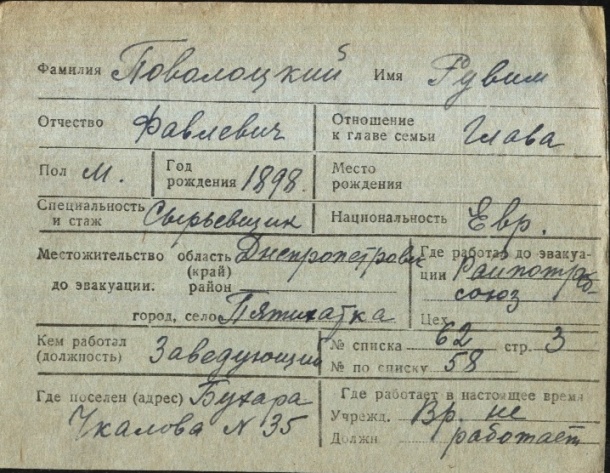 Фамилия Поволоцкий 5 Имя Рувим
Отчество Фавлевич Отношение к главе семьи Глава
Пол М. Год рождения 1898. Место рождения
Специальность и стаж Сырьевщик Национальность Евр.
Местожительство область Днепропетровск Где работал до эвакуа-
(край) ции Райпотреб-
до эвакуации. район союз
город, село Пятихатка Цех
Кем работал (должность) Заведующий № списка 62 стр. 3
№ по списку 58
Где поселен (адрес) Бухара Где работает в настоящее время
Чкалова N 35 Учрежд. Вр. не
Должн работает